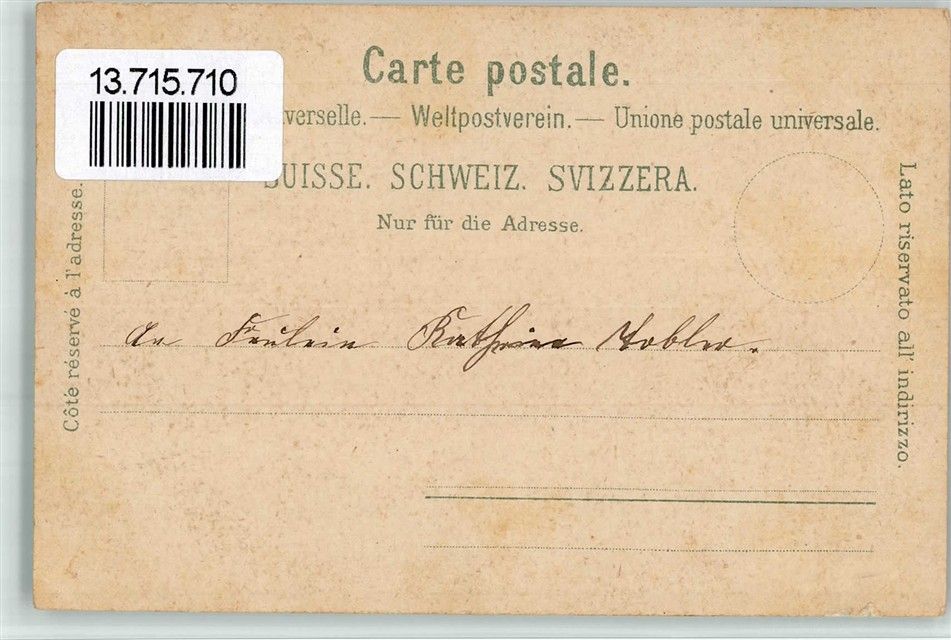 13.715.710
Carte postale.
verselle.— Weltpostverein.— Unione postale universale.
SUISSE. SCHWEIZ. SVIZZERA.
Nur für die Adresse.
Côté réservé à l'adresse.
Lato riservato all' indirizzo.
An Fräulein Kathrine Tobler.